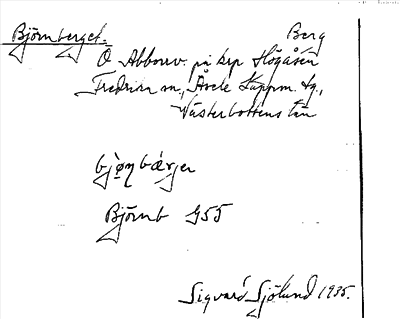 Björnberget. Berg
O Abborrv. på krp Högåsen
Fredrika sn., Åsele Lappm. tg.,
Västerbottens län
bjò̤ŋbæ̀rjer
Björnb G55
Sigvard Sjölund 1935.